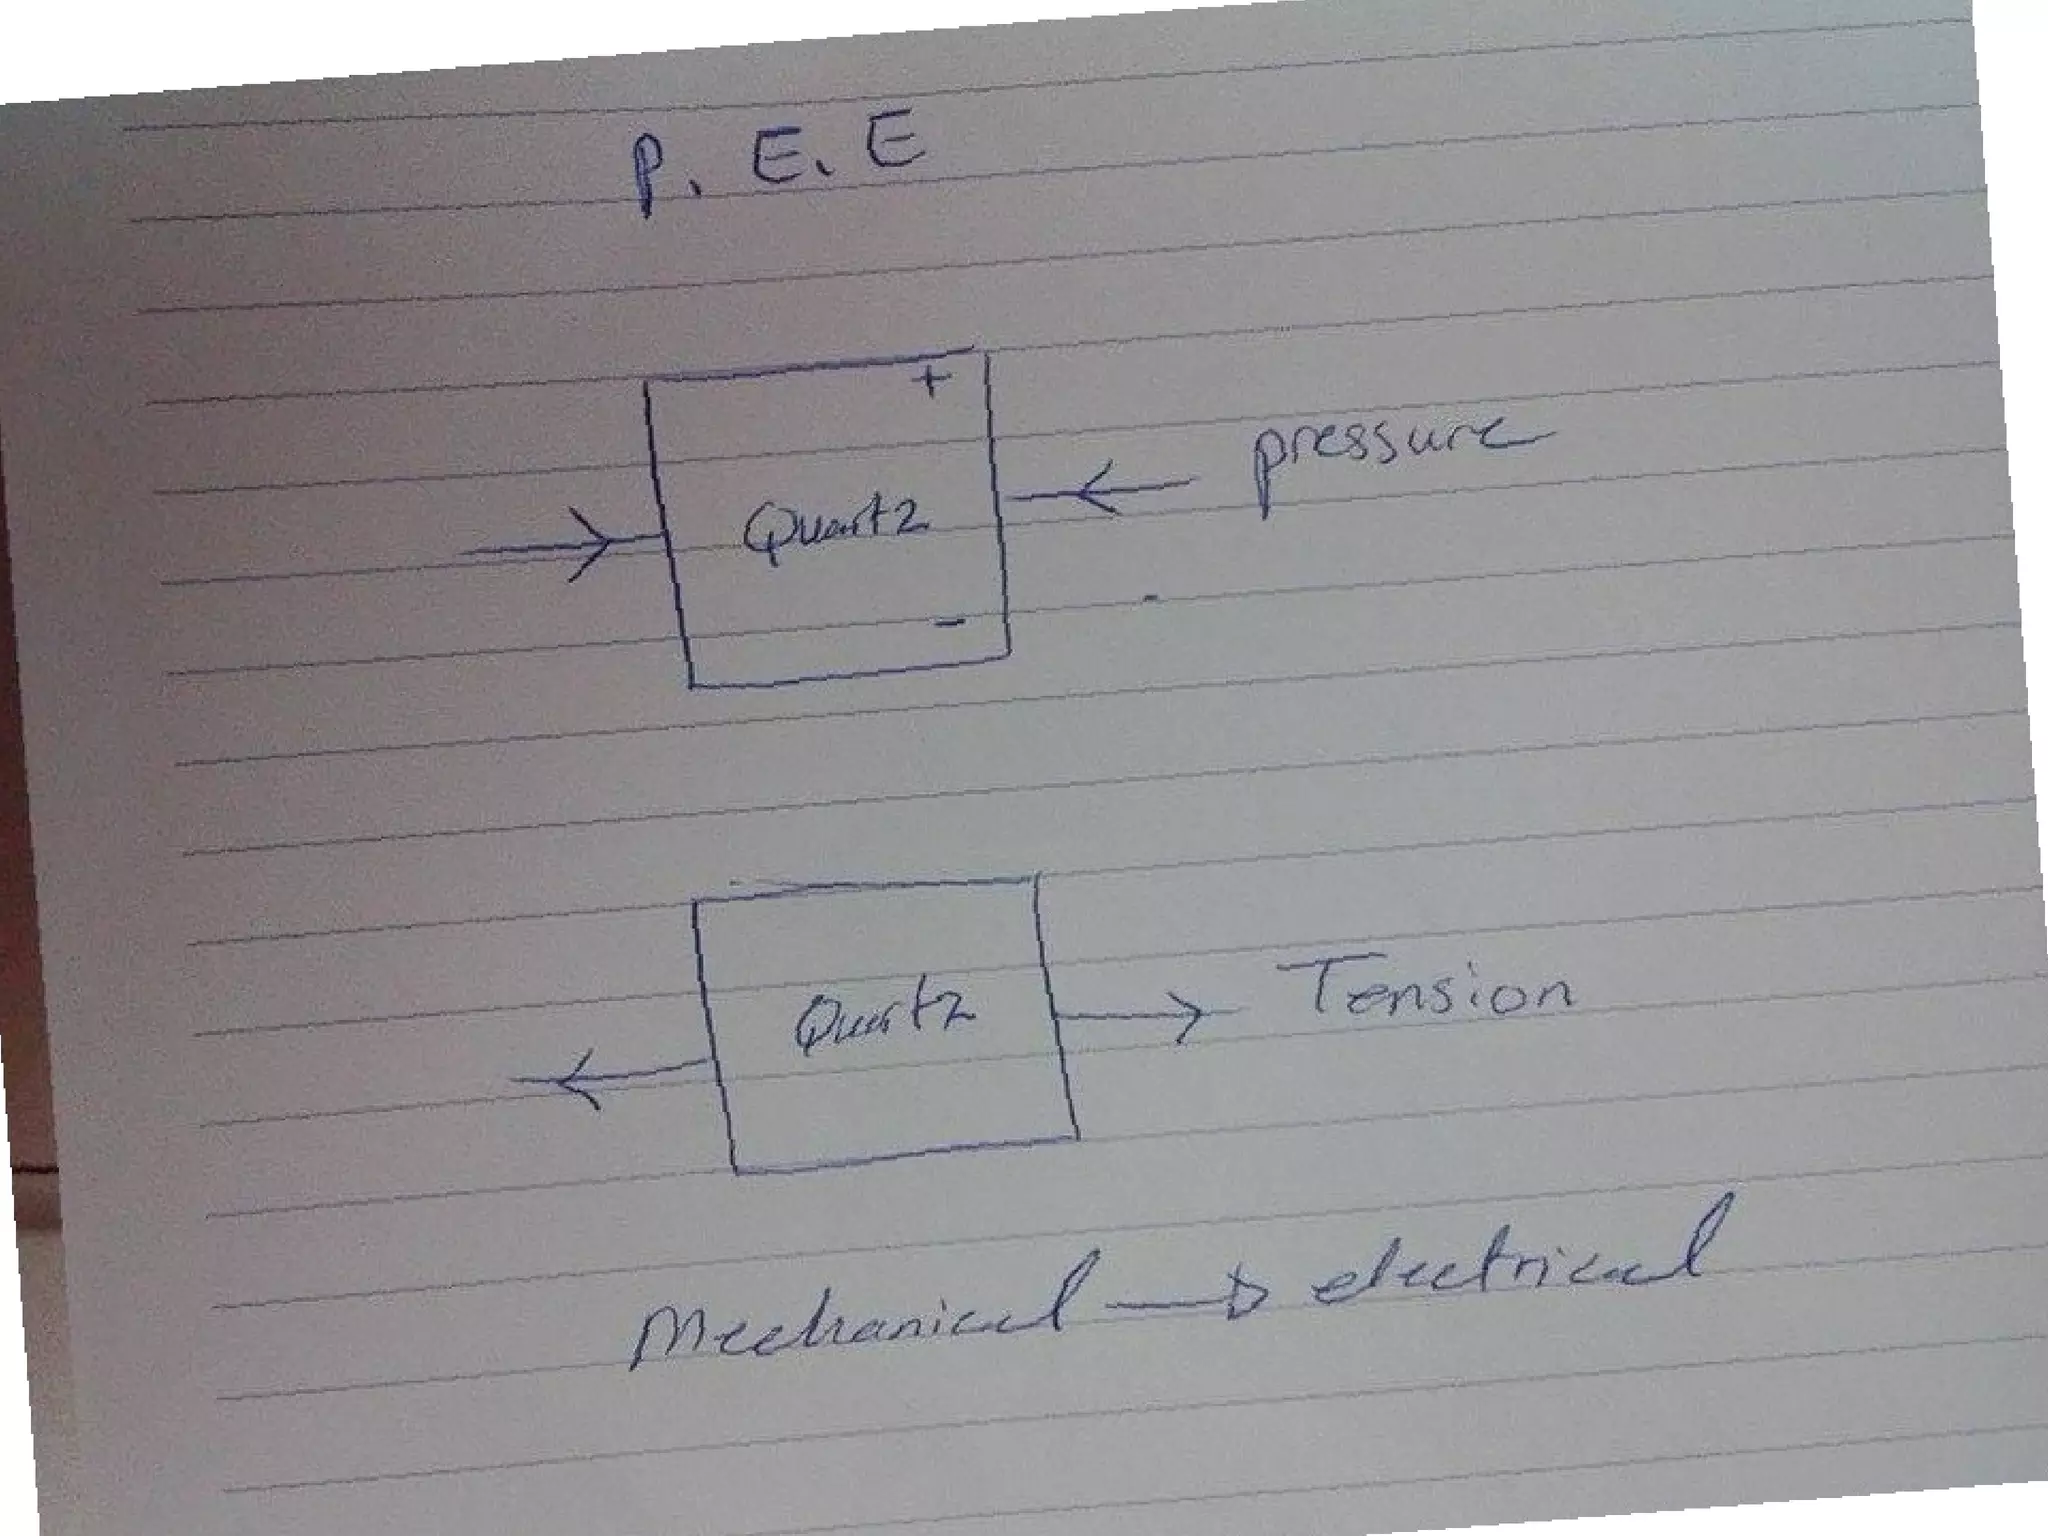 P. E. E
+
pressure
Quartz
-
Quartz
Tension
Mechanical → electrical